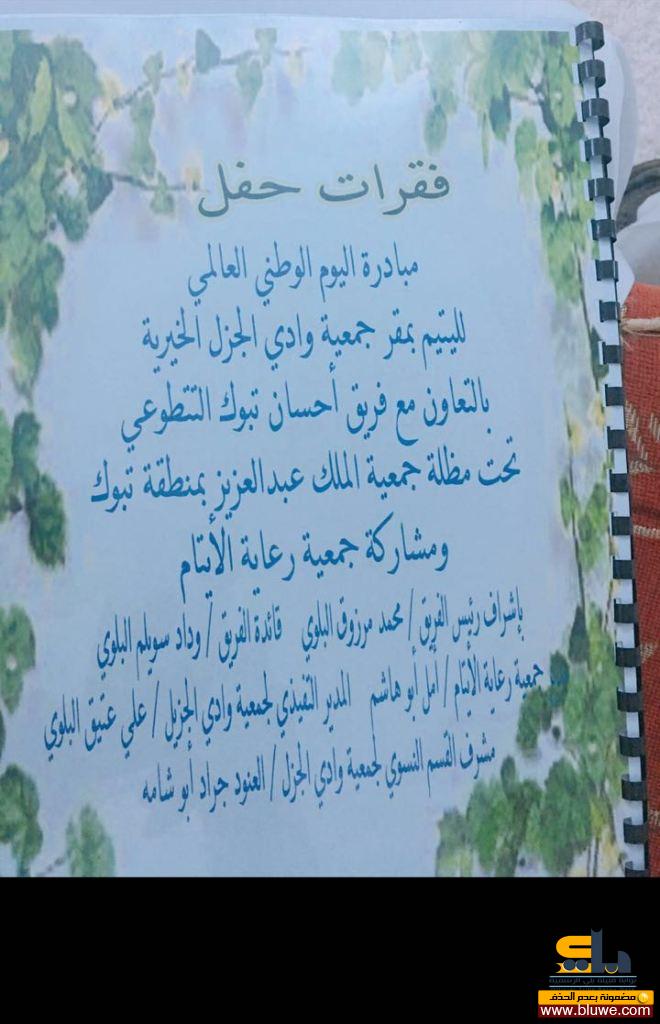 فقرات حفل
مبادرة اليوم الوطني العالمي
لليتيم بمقر جمعية وادي الجزل الخيرية
بالتعاون مع فريق أحسان تبوك التتطوعي
تحت مظلة جمعية الملك عبدالعزيز بمنطقة تبوك
ومشاركة جمعية رعاية الأيتام
بإشراف رئيس الفريق / محمد مرزوق البلوي قائدة الفريق / وداد سويلم البلوي
جمعية رعاية الأيتام / أمل أبو هاشم المدير التنفيذي لجمعية وادي الجزيل / علي عتيق البلوي
مشرف القسم النسوي لجمعية وادي الجزل / العنود جراد أبو شامه
بلي
بوابة قبيلة بلي الرسمية
مضمونة بعدم الحذف
www.bluwe.com